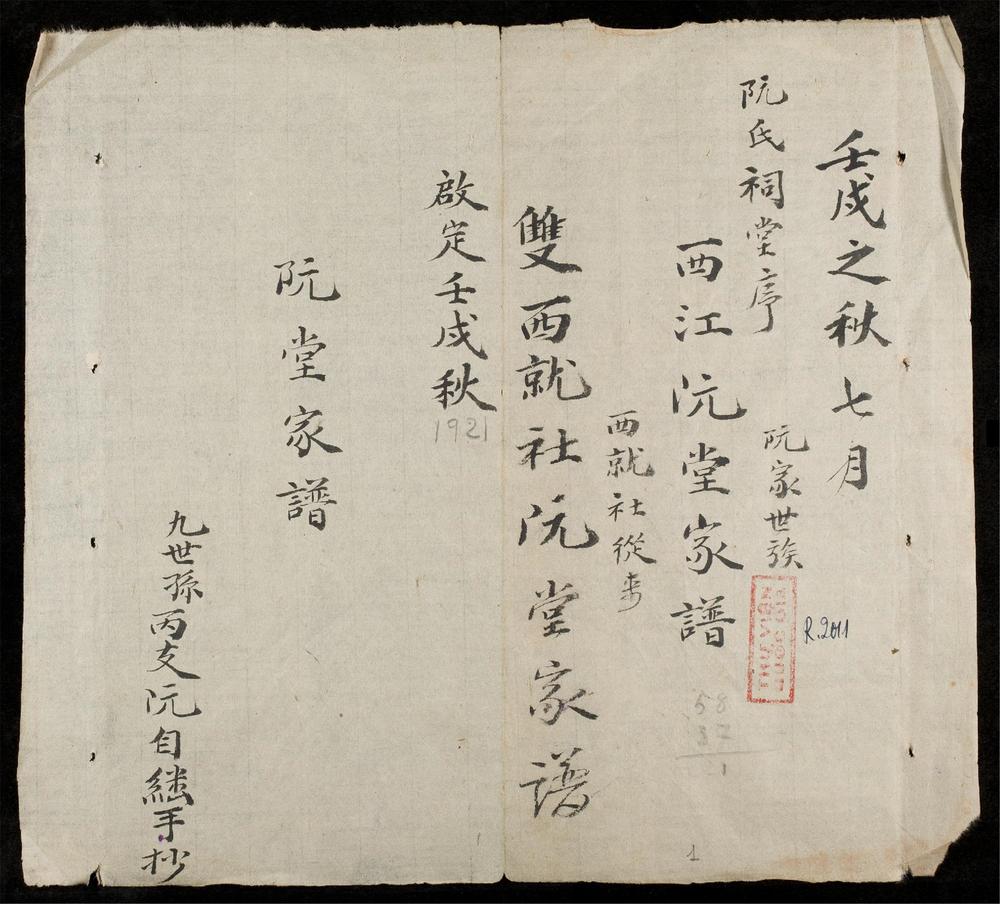 壬戌之秋七月
阮氏祠堂序
阮家世族
西江阮堂家譜
西就社從来
雙西就社阮堂家譜
啟定壬戌秋
1921
阮堂家譜
九世孫丙支阮自繼手抄
R.2011
58
32
1
1